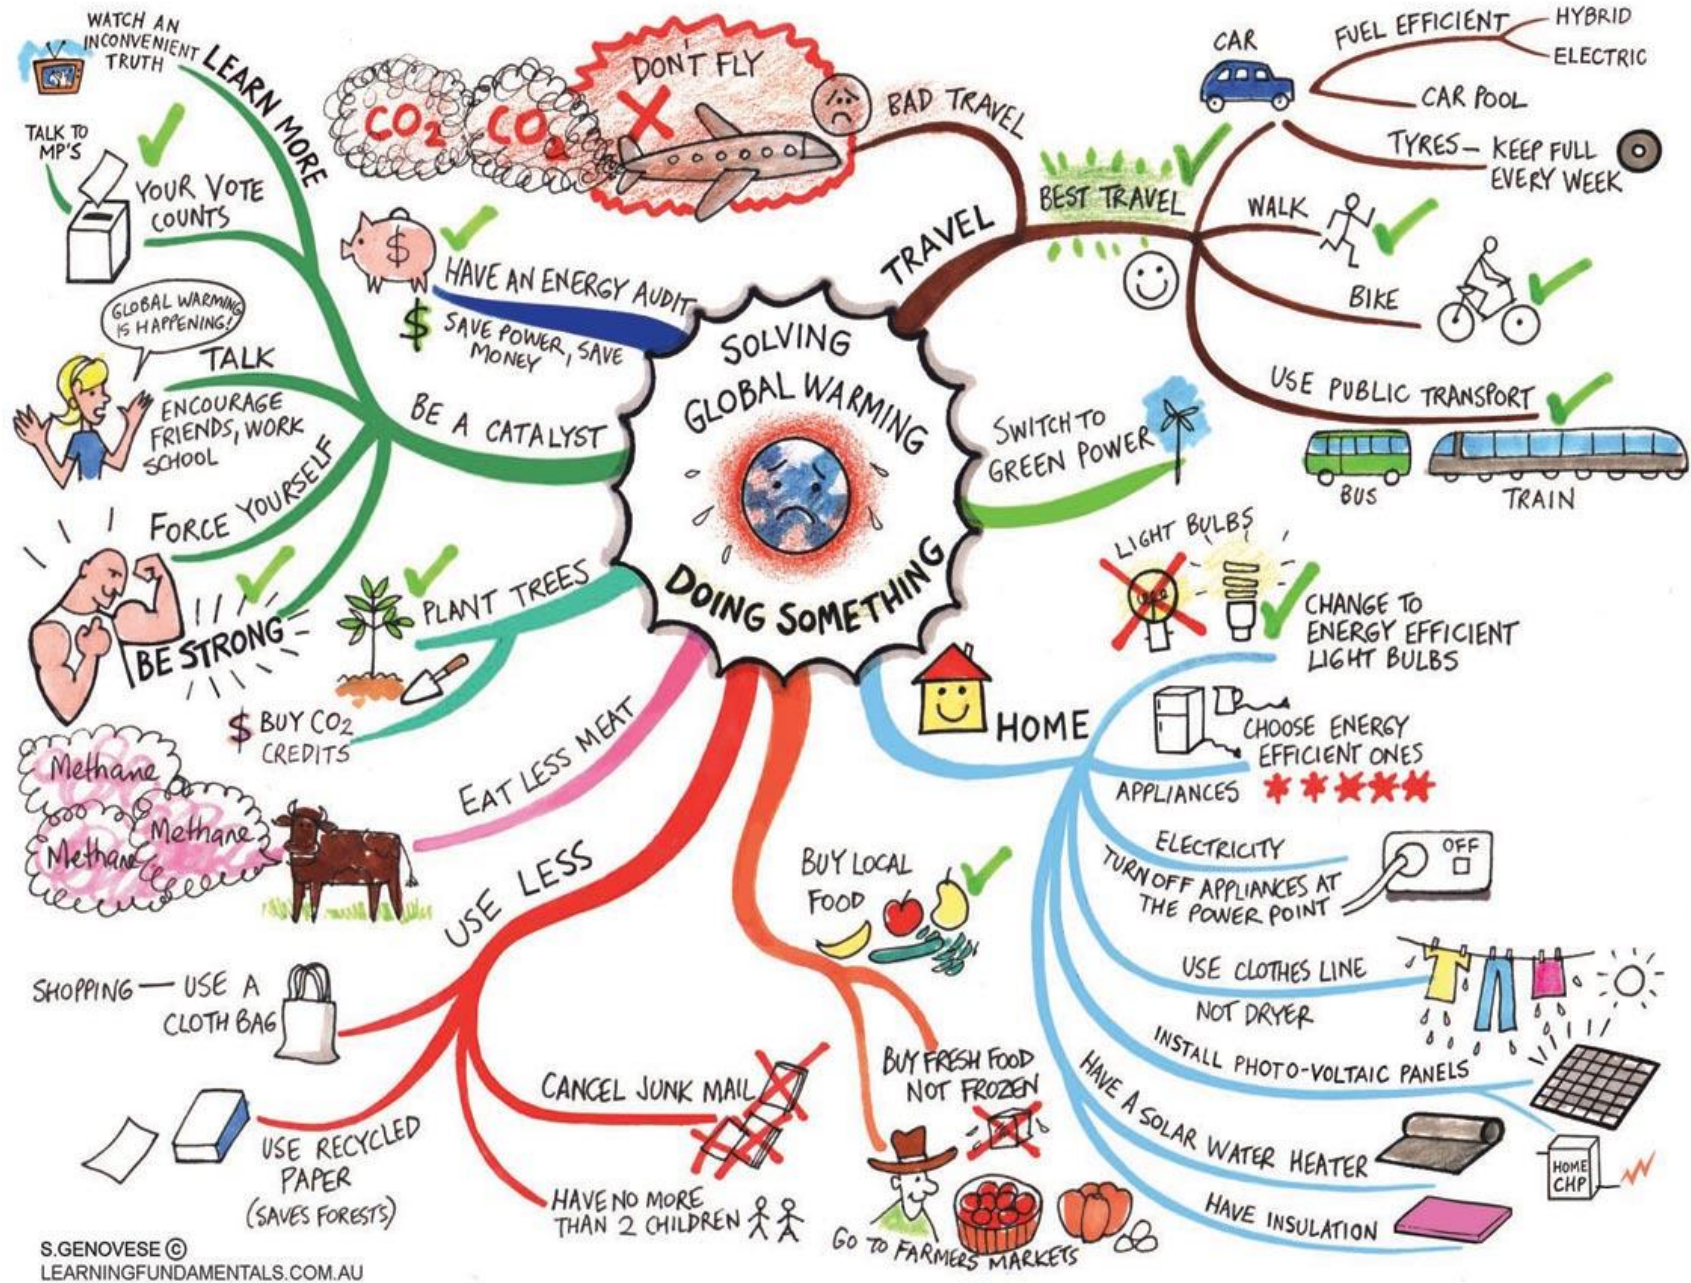 SOLVING
GLOBAL WARMING
DOING SOMETHING
TRAVEL
BAD TRAVEL
DON'T FLY
CO2
CO2
BEST TRAVEL
CAR
FUEL EFFICIENT
HYBRID
ELECTRIC
CAR POOL
TYRES — KEEP FULL
EVERY WEEK
WALK
BIKE
USE PUBLIC TRANSPORT
BUS
TRAIN
SWITCH TO
GREEN POWER
HOME
LIGHT BULBS
CHANGE TO
ENERGY EFFICIENT
LIGHT BULBS
CHOOSE ENERGY
EFFICIENT ONES
APPLIANCES
ELECTRICITY
TURN OFF APPLIANCES AT
THE POWER POINT
OFF
USE CLOTHES LINE
NOT DRYER
INSTALL PHOTO-VOLTAIC PANELS
HOME
CHP
HAVE A SOLAR WATER HEATER
HAVE INSULATION
BUY LOCAL
FOOD
BUY FRESH FOOD
NOT FROZEN
GO TO FARMERS MARKETS
USE LESS
SHOPPING — USE A
CLOTH BAG
USE RECYCLED
PAPER
(SAVES FORESTS)
CANCEL JUNK MAIL
HAVE NO MORE
THAN 2 CHILDREN
EAT LESS MEAT
Methane
Methane
Methane
PLANT TREES
$ BUY CO2
CREDITS
BE A CATALYST
LEARN MORE
WATCH AN
INCONVENIENT
TRUTH
YOUR VOTE
COUNTS
TALK TO
MP'S
TALK
GLOBAL WARMING
IS HAPPENING!
ENCOURAGE
FRIENDS, WORK
SCHOOL
FORCE YOURSELF
BE STRONG
HAVE AN ENERGY AUDIT
$
$ SAVE POWER, SAVE
MONEY
S.GENOVESE ©
LEARNINGFUNDAMENTALS.COM.AU